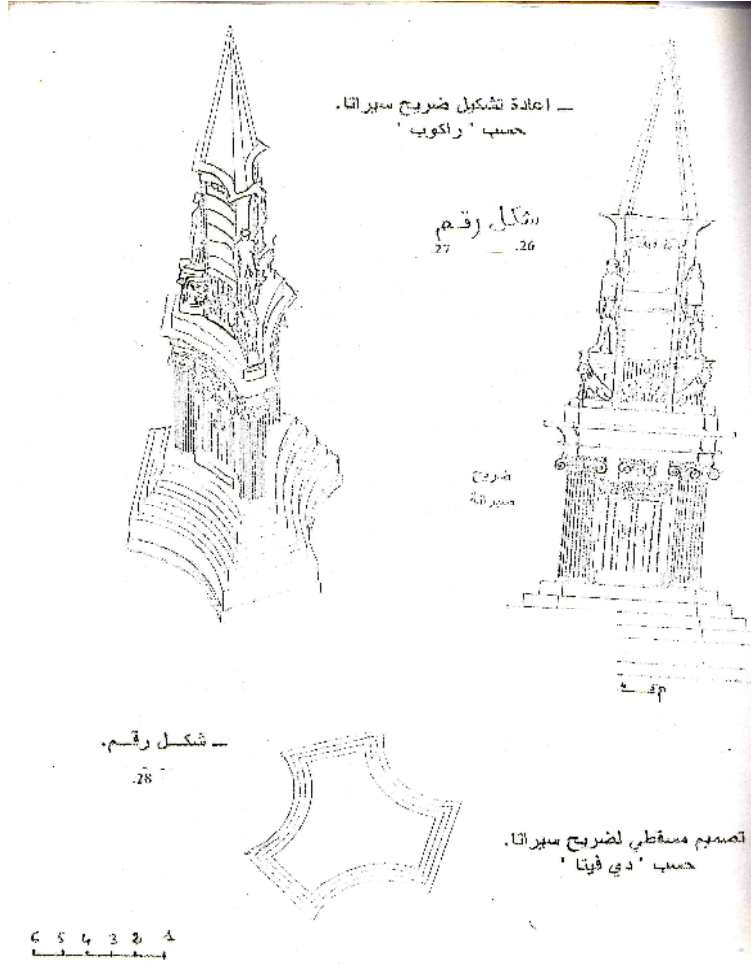 ـ اعادة تشكيل ضريح سبراتا.
حسب ' راكوب '
شكل رقم
27 _ 26.
ضريح
صبراتة
ـ شكل رقم.
28.
تصميم مسقطي لضريح سبراتا.
حسب ' دي فيتا '
6 5 4 3 2 1